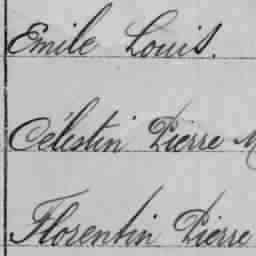 Emile Louis.
Célestin Pierre M
Florentin Pierre